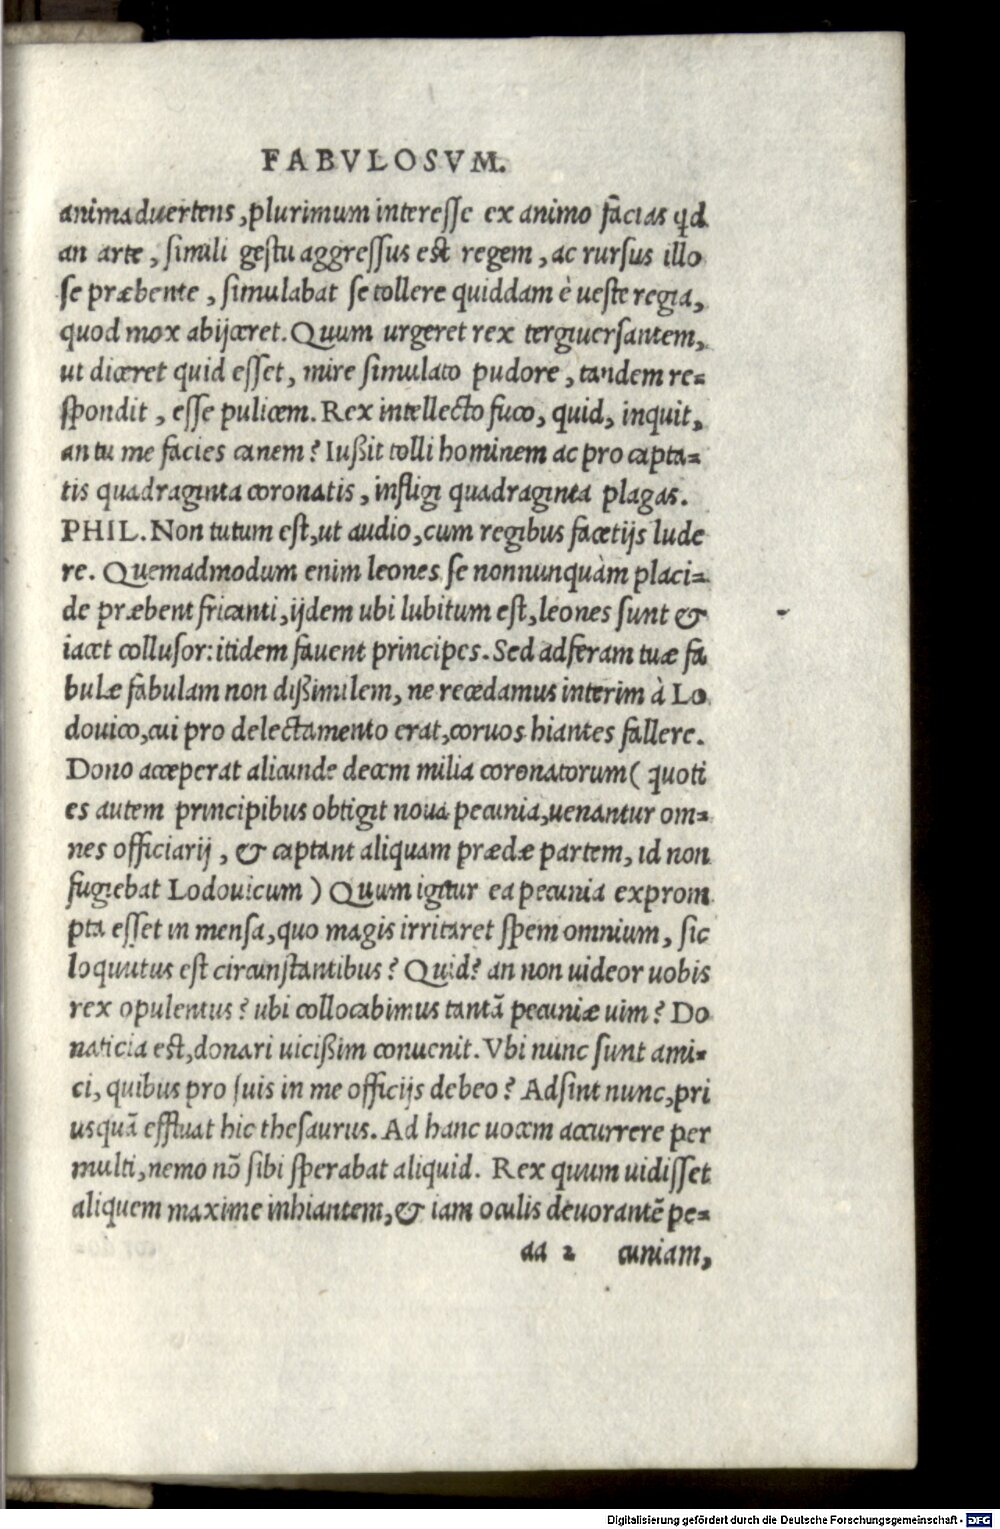 FABVLOSVM.
animaduertens, plurimum interesse ex animo facias qd
an arte, simili gestu aggressus est regem, ac rursus illo
se præbente, simulabat se tollere quiddam è ueste regia,
quod mox abijceret. Quum urgeret rex tergiuersantem,
ut diceret quid esset, mire simulato pudore, tandem re=
spondit, esse pulicem. Rex intellecto fuco, quid, inquit,
an tu me facies canem? Iußit tolli hominem ac pro capta=
tis quadraginta coronatis, infligi quadraginta plagas.
PHIL. Non tutum est, ut audio, cum regibus facetijs lude
re. Quemadmodum enim leones se nonnunquàm placi=
de præbent fricanti, ijdem ubi lubitum est, leones sunt &
iacet collusor: itidem fauent principes. Sed adferam tuæ fa
bulæ fabulam non dißimilem, ne recedamus interim à Lo
douico, cui pro delectamento erat, coruos hiantes fallere.
Dono acceperat alicunde decem milia coronatorum ( quoti
es autem principibus obtigit noua pecunia, uenantur om=
nes officiarij, & captant aliquam prædæ partem, id non
fugiebat Lodouicum ) Quum igitur ea pecunia exprom
pta esset in mensa, quo magis irritaret spem omnium, sic
loquutus est circunstantibus? Quid? an non uideor uobis
rex opulentus? ubi collocabimus tantã pecuniæ uim? Do
naticia est, donari uicißim conuenit. Vbi nunc sunt ami=
ci, quibus pro suis in me officijs debeo? Adsint nunc, pri
usquã effluat hic thesaurus. Ad hanc uocem accurrere per
multi, nemo nõ sibi sperabat aliquid. Rex quum uidisset
aliquem maxime inhiantem, & iam oculis deuorantẽ pe=
aa 2 cuniam,
Digitalisierung gefördert durch die Deutsche Forschungsgemeinschaft - DFG